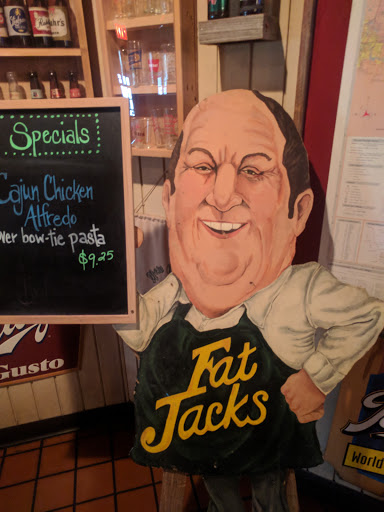 Specials
Cajun Chicken
Alfredo
over bow-tie pasta
$9.25
Fat
Jacks
Gusto
World